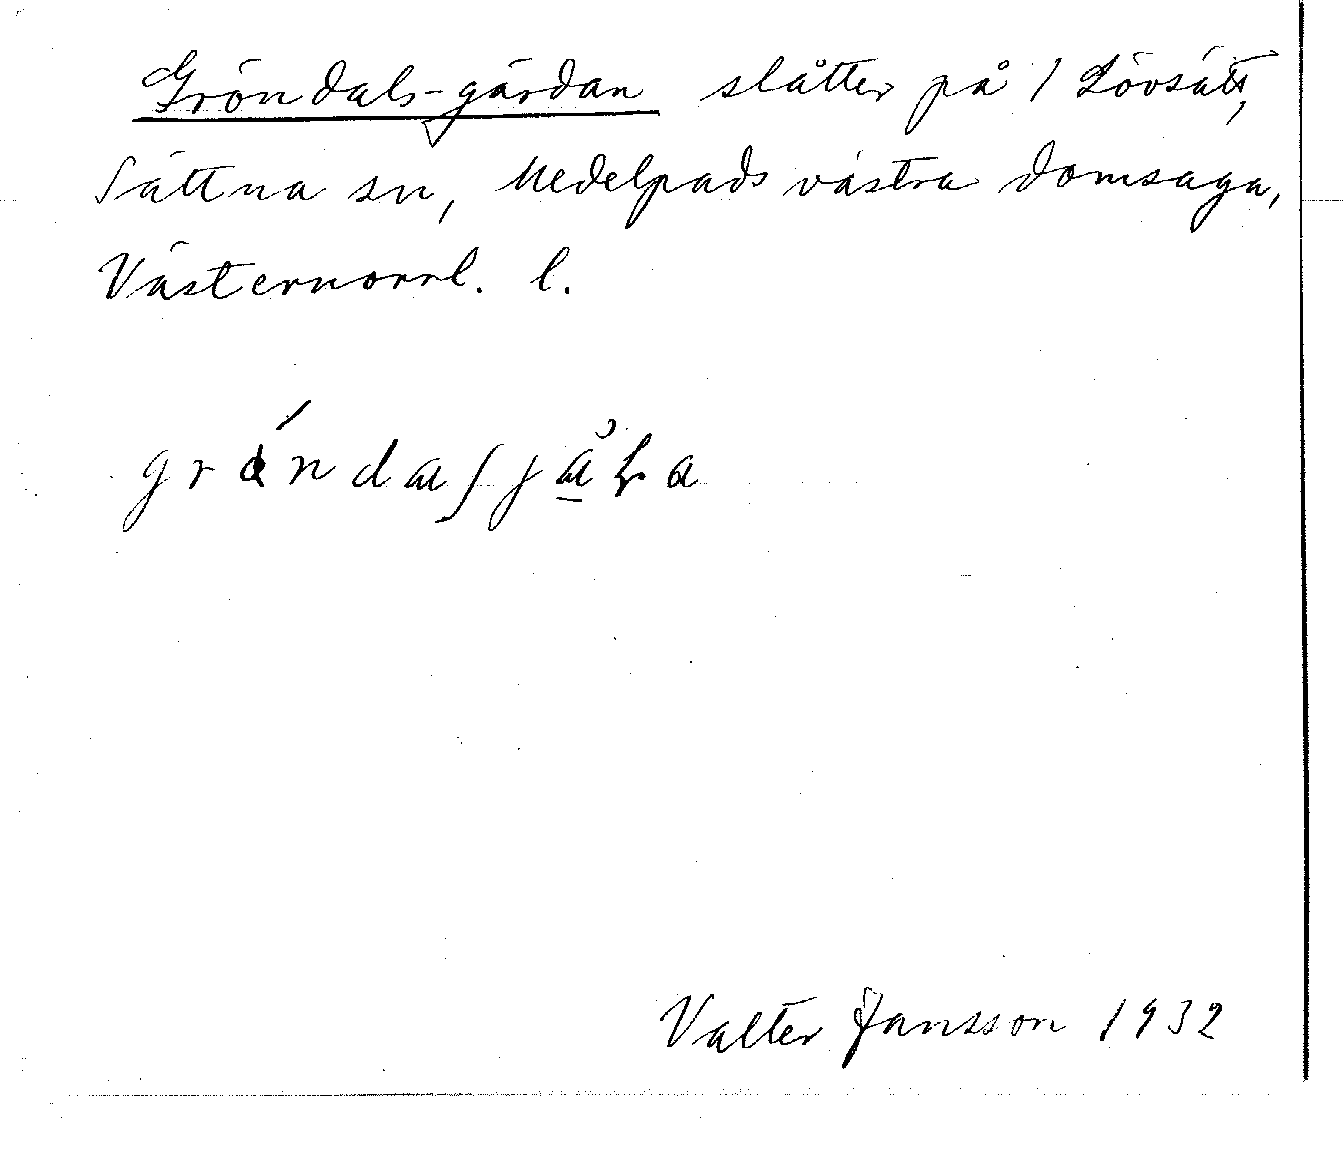 Gröndals-gärdan slåtter på 1 Lövsätt,
Sättna sn, Medelpads västra domsaga,
Västernorrl. l.
Valter Jansson 1932